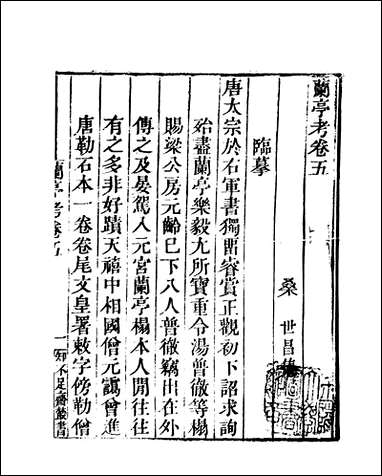 蘭亭考卷五
桑世昌
臨摹
唐太宗於右軍書獨留睿賞正觀初下詔求詢
殆盡蘭亭樂毅尤所寶重令湯普徹等榻
賜梁公房元齡已下八人普徹竊出在外
傳之及晏駕入元宮蘭亭榻本人閒往往
有之多非好蹟天禧中相國僧元靄曾進
唐勒石本一卷卷尾文皇署敕字傍勒僧
蘭亭考卷五
一
知不足齋叢書